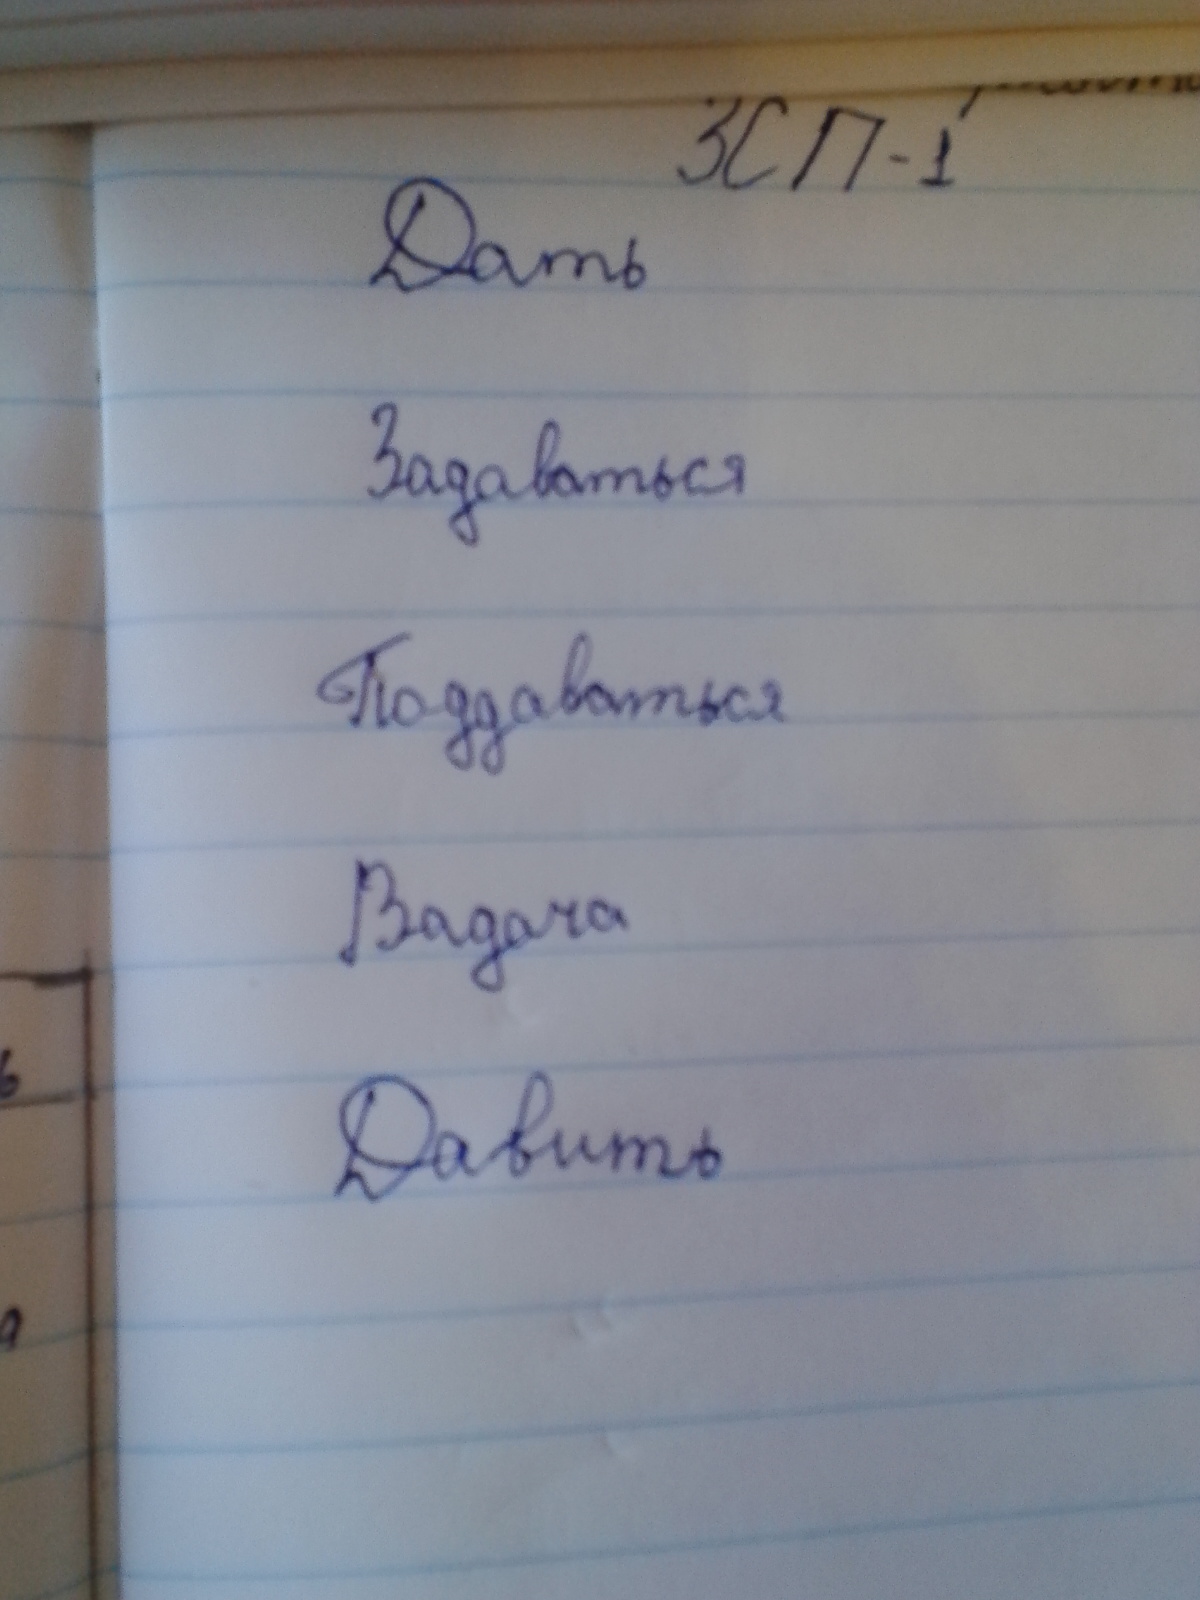 ЗСП-1
Дать
Задаваться
Поддаваться
Вадача
Давить